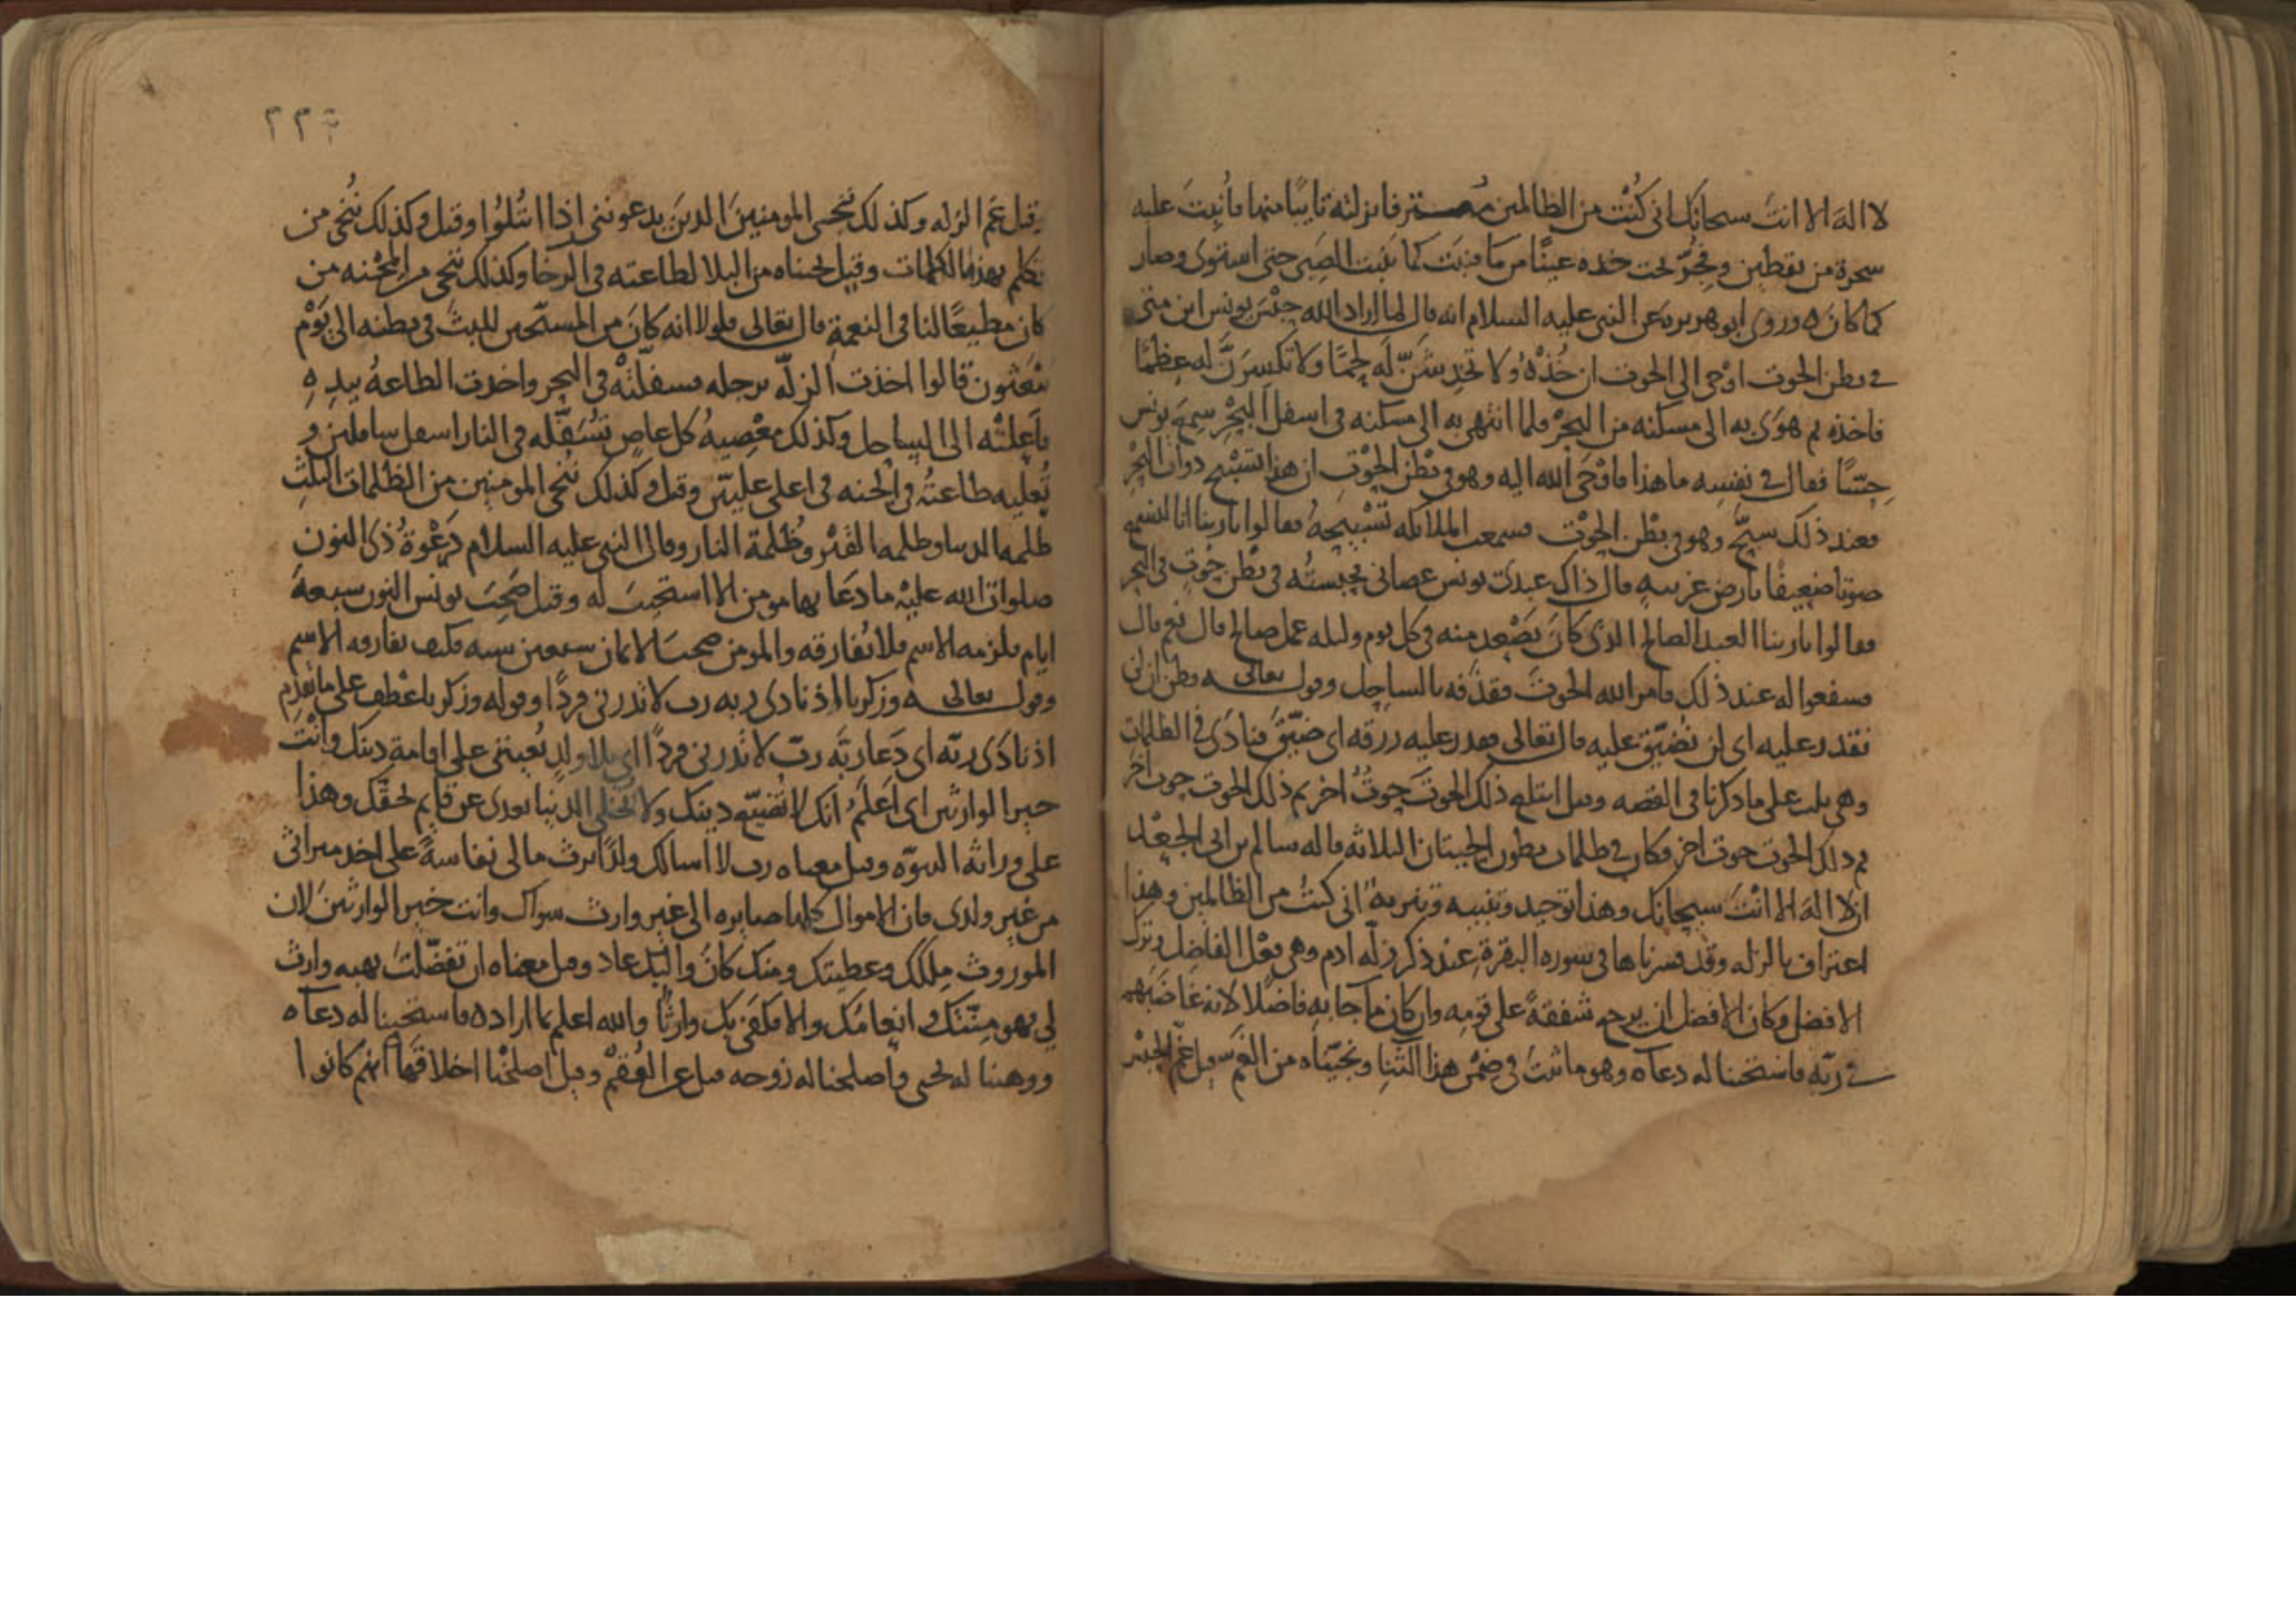 لا اله الا انت سبحانك انى كنت من الظالمين معترفا بزلته تايبا منها فانبت عليه
شجرة من يقطين وفجر تحت خده عينا من ما فنبت كما ينبت الصبى حتى استوى وصار
كما كان ه وروى ابو هريرة عن النبى عليه السلام انه قال لما اراد الله حبس يونس ابن متى
فى بطن الحوت اوحى الى الحوت ان خذه ولا تخدشن له لحما ولا تكسرن له عظما
فاخذه ثم هوى به الى مسكنه من البحر فلما انتهى به الى مسكنه فى اسفل البحر سمع يونس
حسا فقال فى نفسه ما هذا فاوحى الله اليه وهو فى بطن الحوت ان هذا تسبيح دواب البحر
فعند ذلك سبح وهو فى بطن الحوت فسمعت الملائكه تسبيحه فقالوا يا ربنا انا لنسمع
صوتا ضعيفا بارض غريبه قال ذاك عبدى يونس عصانى فحبسته فى بطن حوت فى البحر
فقالوا يا ربنا العبد الصالح الذى كان يصعد منه فى كل يوم وليله عمل صالح قال نعم قال
فشفعوا له عند ذلك فامر الله الحوت فقذفه بالساحل وقوله تعالى فظن ان لن
نقدر عليه اى لن نضيق عليه قال تعالى فقدر عليه رزقه اى ضيق فنادى فى الظلمات
وهى ثلث على ما ذكرنا فى القصه وقيل ابتلع ذلك الحوت حوت اخر ثم ذلك الحوت حوت اخر
ثم ذلك الحوت حوت اخر فكان فى ظلمات بطون الحيتان الثلاثه قاله سالم بن ابى الجعد
ان لا اله الا انت سبحانك وهذا توحيد وتنبيه وتنزيه انى كنت من الظالمين وهذا
اعتراف بالزله وقد فسرناها فى سوره البقرة عند ذكر زلة ادم وهى فعل الفاضل وترك
الافضل وكان الافضل ان يرحم شفقة على قومه وان كان ما جا به فاضلا لانه غاضبهم
فى ربه فاستجبنا له دعاه وهو ما ثبت فى ضمن هذا الثنا ونجيناه من الغم قيل غم الحبس
٢٢٦
قيل غم الزله وكذلك ننجى المومنين الذين يدعوننى اذا ابتلوا وقيل وكذلك ننجى من
تكلم بهذه الكلمات وقيل نجيناه من البلا لطاعته فى الرخا وكذلك ننجى من المحنه من
كان مطيعا لنا فى النعمة قال تعالى فلولا انه كان من المسبحين للبث فى بطنه الى يوم
يبعثون قالوا اخذت الزلة برجله فسفلته فى البحر واخذت الطاعة بيده
فاعلته الى الساحل وكذلك معصية كل عاص تسفله فى النار اسفل سافلين و
تعليه طاعته فى الجنه فى اعلى عليين وقيل وكذلك ننجى المومنين من الظلمات الثلث
ظلمه الدنيا وظلمه القبر وظلمة النار وقال النبى عليه السلام دعوة ذى النون
صلوات الله عليه ما دعا بها مومن الا استجيب له وقيل صحب يونس النون سبعة
ايام فلزمه الاسم فلا يفارقه والمومن صحب الايمان سبعين سنه فكيف يفارقه الاسم
وقوله تعالى وزكريا اذ نادى ربه رب لا تذرنى فردا وقوله وزكريا عطف على ما تقدم
اذ نادى ربه اى دعا ربه رب لا تذرنى فردا اى بلا ولد يعيننى على اقامة دينك وانت
خير الوارثين اى اعلم انك لا تضيع دينك ولا تخلى الدنيا بعدى عن قايم لحقك وهذا
على وراثه النبوه وقيل معناه رب لا اسالك ولدا يرث مالى نفاسة على اخذ ميراثى
من غير ولدى فان الاموال كلها صايره الى غير وارث سواك وانت خير الوارثين لان
الموروث ملكك وعطيتك ومنك كان واليك عاد وقيل معناه ان تفضلت بهبه وارث
لى فهو منتك وانعامك والا فكفى بك وارثا والله اعلم بما اراده فاستجبنا له دعاه
ووهبنا له يحيى واصلحنا له زوجه قيل عن العقم وقيل اصلحنا اخلاقها انهم كانوا